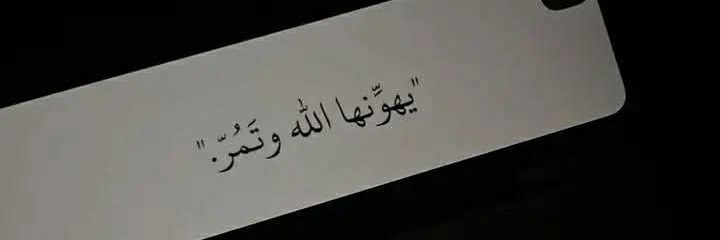 "يهوِّنها الله وتَمُرّ."